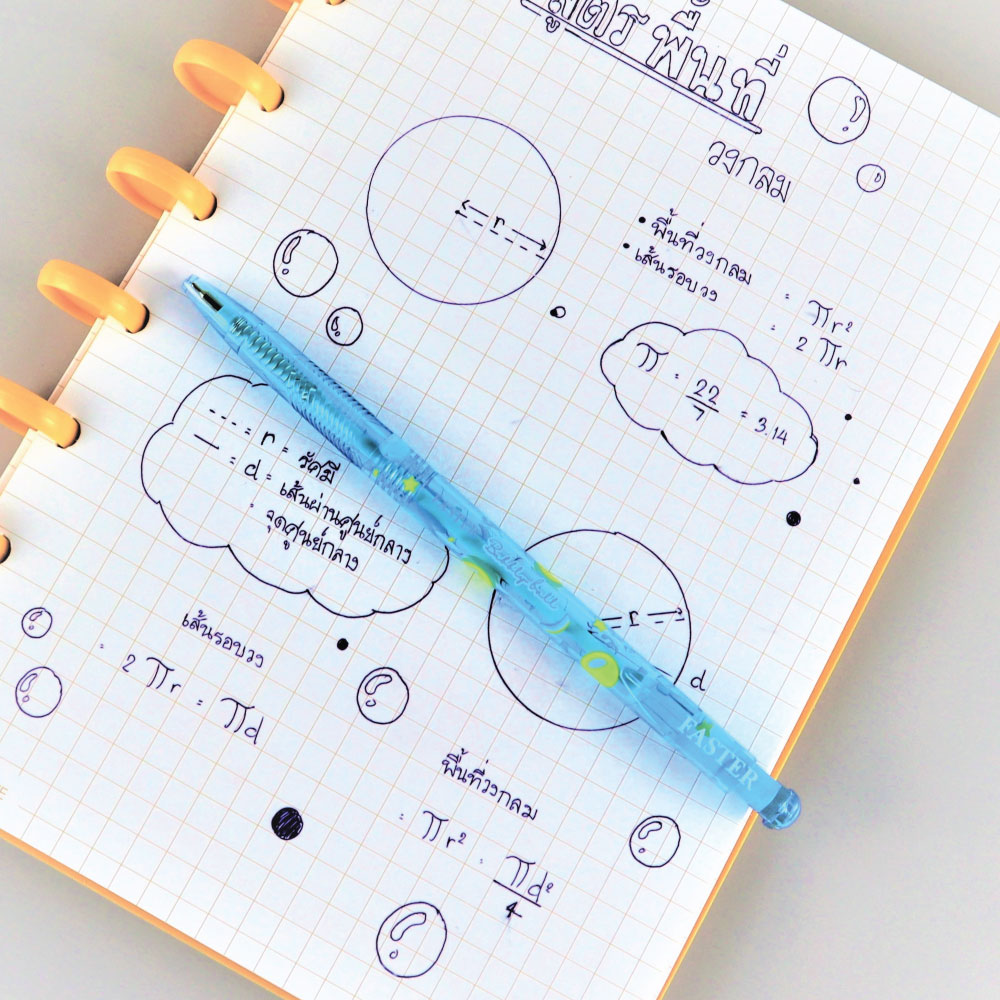 สูตรพื้นที่
วงกลม
r
• พื้นที่วงกลม = πr²
• เส้นรอบวง = 2πr
π = 22/7 = 3.14
--- = r = รัศมี
— = d = เส้นผ่านศูนย์กลาง
: จุดศูนย์กลาง
r
d
เส้นรอบวง
= 2πr = πd
พื้นที่วงกลม
= πr² = πd²/4
FASTER